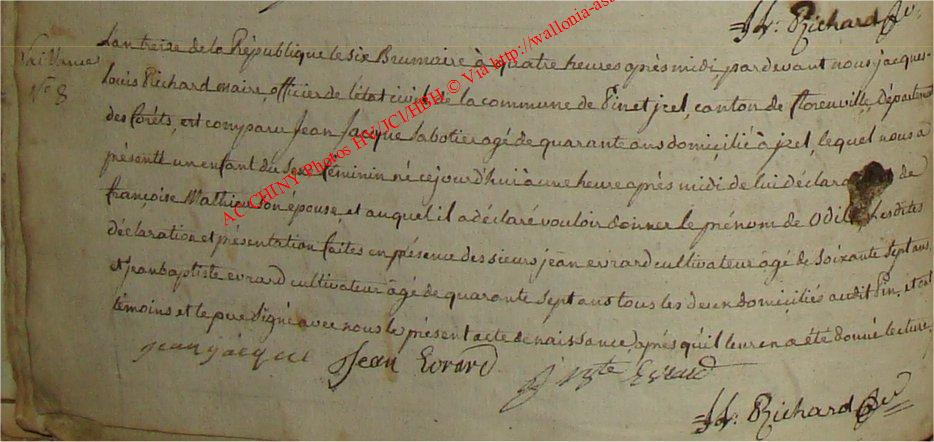 J. L. Richard
Naissance
N.o 8
L'an treize de la République le six Brumaire à quatre heures après midi par devant nous jacques-
Louis Richard maire, officier de l'état civil de la commune de Pin et jzel, canton de florenville, Département
des forêts, est comparu Jean Jacque Sabotier agé de quarante ans domicilié à jzel, lequel nous a
présenté un enfant du Sexe féminin né cejourd'hui à une heure après midi de lui déclarant de
françoise Mathieu son épouse, et auquel il a déclaré vouloir donner le prénom de Odile, Lesdites
déclaration et présentation faites en présence des sieurs jean evrard cultivateur agé de Soixante Sept ans,
et jean baptiste evrard cultivateur âgé de quarante Sept ans tous les deux domiciliés audit Pin, et ont
témoins et le pere Signé avec nous le présent acte de naissance, après qu'il leur en a été donné lecture.
jean jacque Jean Evrard J. Bste Evrard
J. L. Richard
AC CHINY Photos HV/JCl/HBH © Via http://wallonia-as